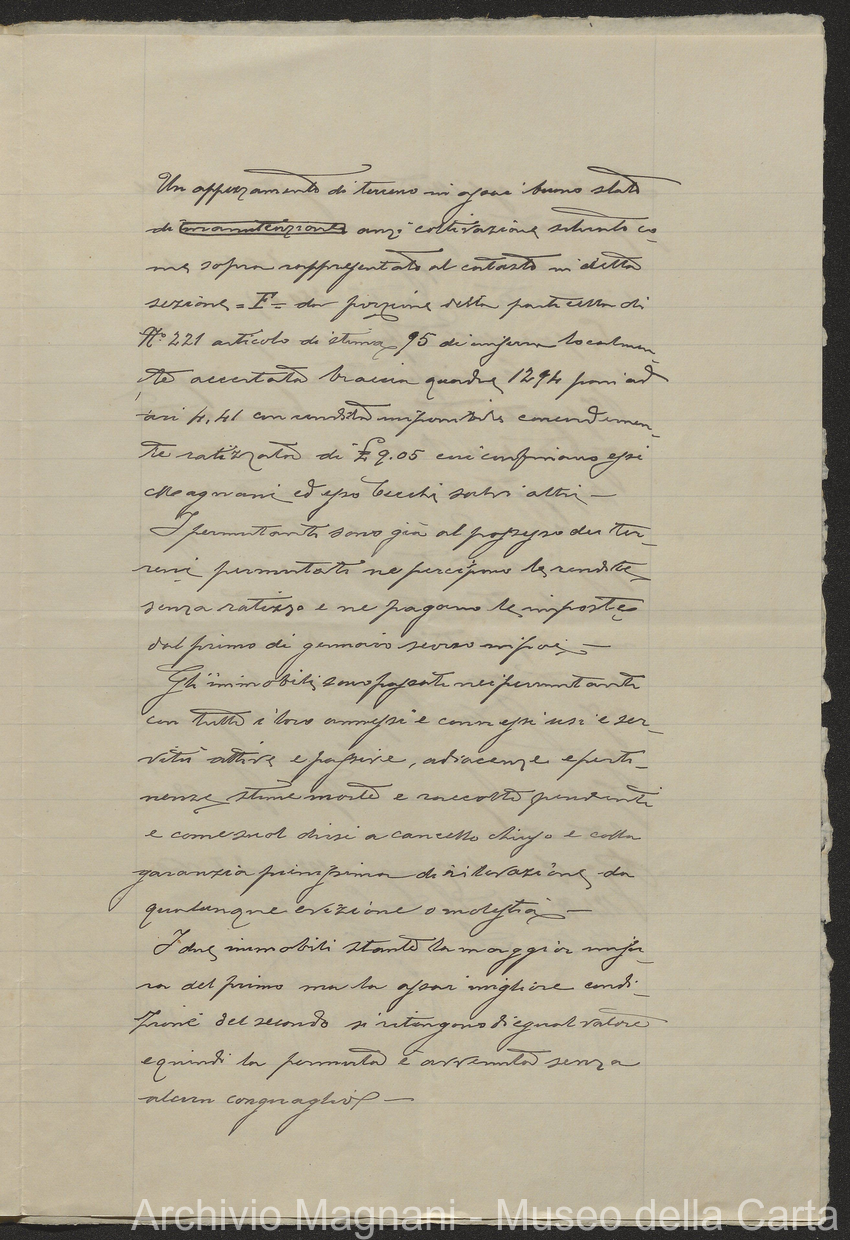 Un appezzamento di terreno in assai buono stato
di manutenzione anzi coltivazione situato co-
me sopra rappresentato al catasto in detta
sezione = F = da porzione della particella di
N.° 221 articolo di stima 95 di misura localmen-
te accertata braccia quadre 1294 pari ad
ari 4,41 con rendita imponibile concordemen-
te ratizzata di £ 9.05 cui confinano essi
Magnani ed esso Cecchi salvi altri —
I permutanti sono già al possesso dei ter-
reni permutati ne percipono le rendite
senza ratizzo e ne pagano le imposte
dal primo di gennaio scorso in poi —
Gli immobili sono passati nei permutanti
con tutti i loro annessi e connessi usi e ser-
vitù attive e passive, adiacenze e perti-
nenze, stime morte e raccolte pendenti
e come suol dirsi a cancello chiuso e colla
garanzia pienissima di rilevazione da
qualunque evizione o molestia —
I due immobili stante la maggior misu-
ra del primo ma la assai migliore condi-
zione del secondo si ritengono di egual valore
e quindi la permuta è avvenuta senza
alcun conguaglio —
Archivio Magnani - Museo della Carta